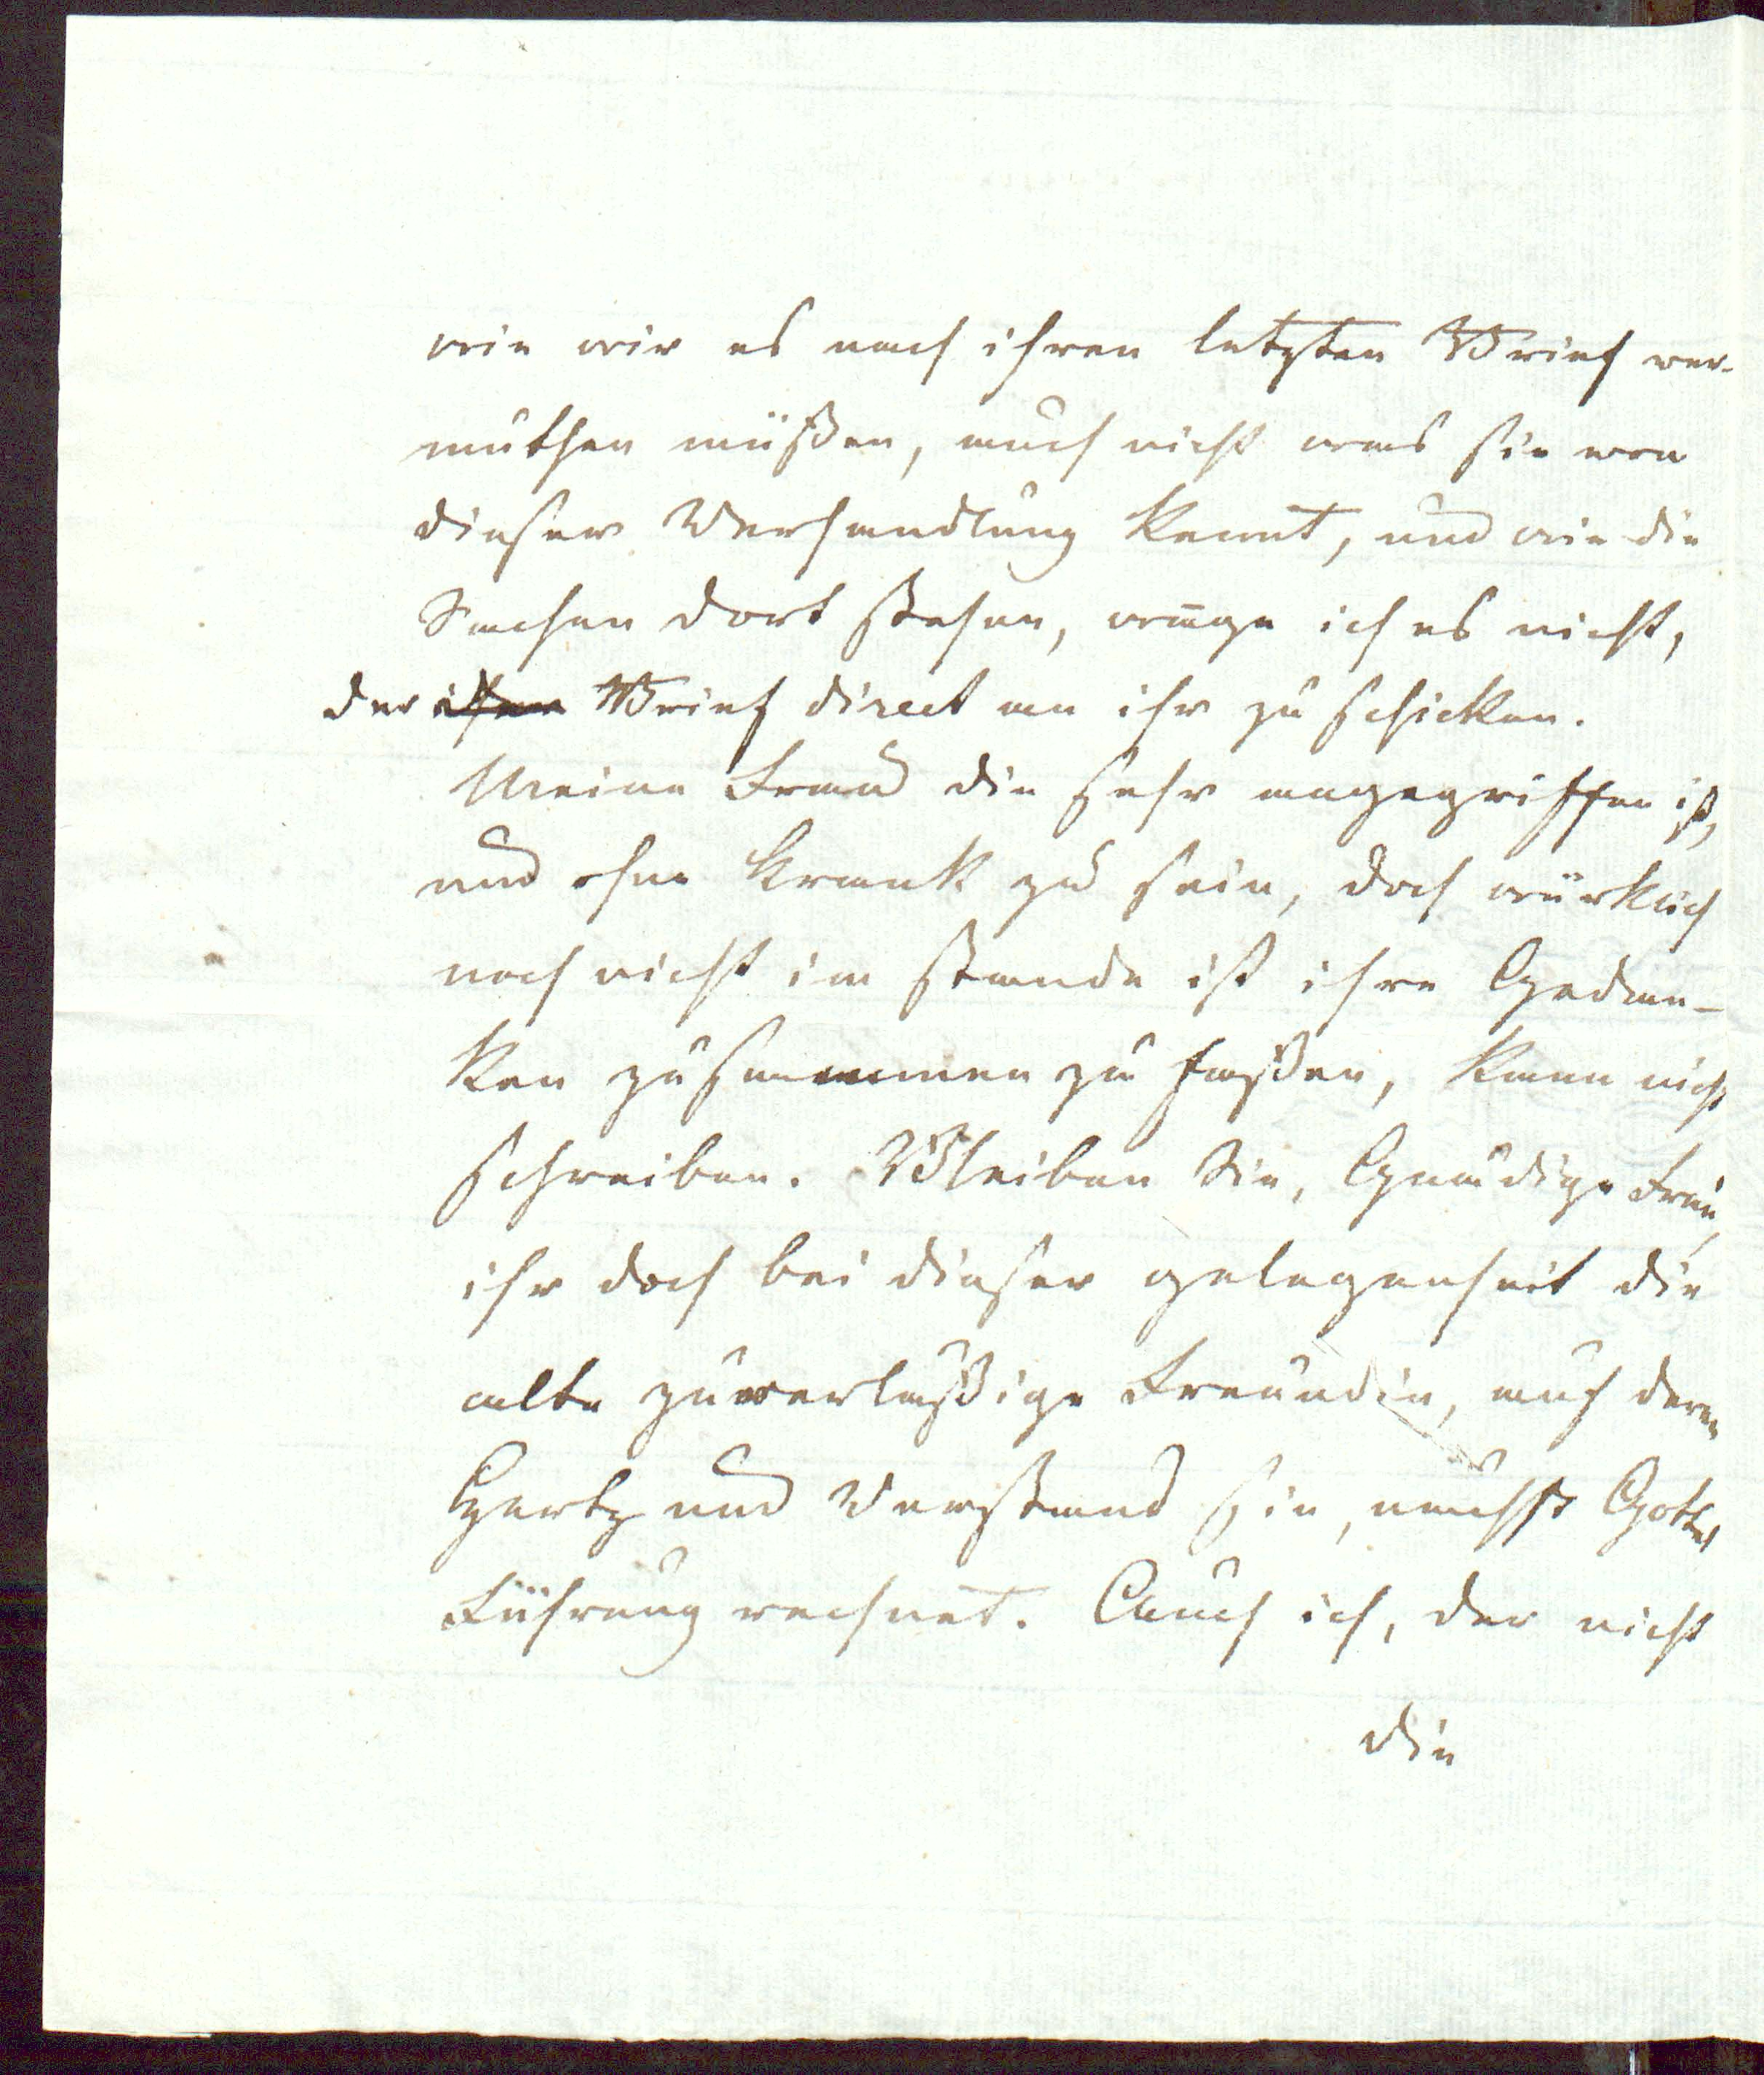 wie wir es nach ihren letzten Brief ver-
muthen müßen, auch nicht was sie von
dieser Verhandlung kennt, und wie die
Sachen dort stehen, wage ich es nicht,
der Brief direct an ihr zu schicken.
Meine Frau die sehr angegriffen ist,
und ohne krank zu sein, doch würklich
noch nicht im stande ist ihre Gedan-
ken zusammen zu faßen, kann nicht
schreiben. Bleiben Sie, Gnädige Frau,
ihr doch bei dieser gelegenheit die
alte zuverlaßige Freundin, auf deren
Hertz und Verstand sie, nächst Gottes
Führung rechnet. Auch ich, der nicht
die